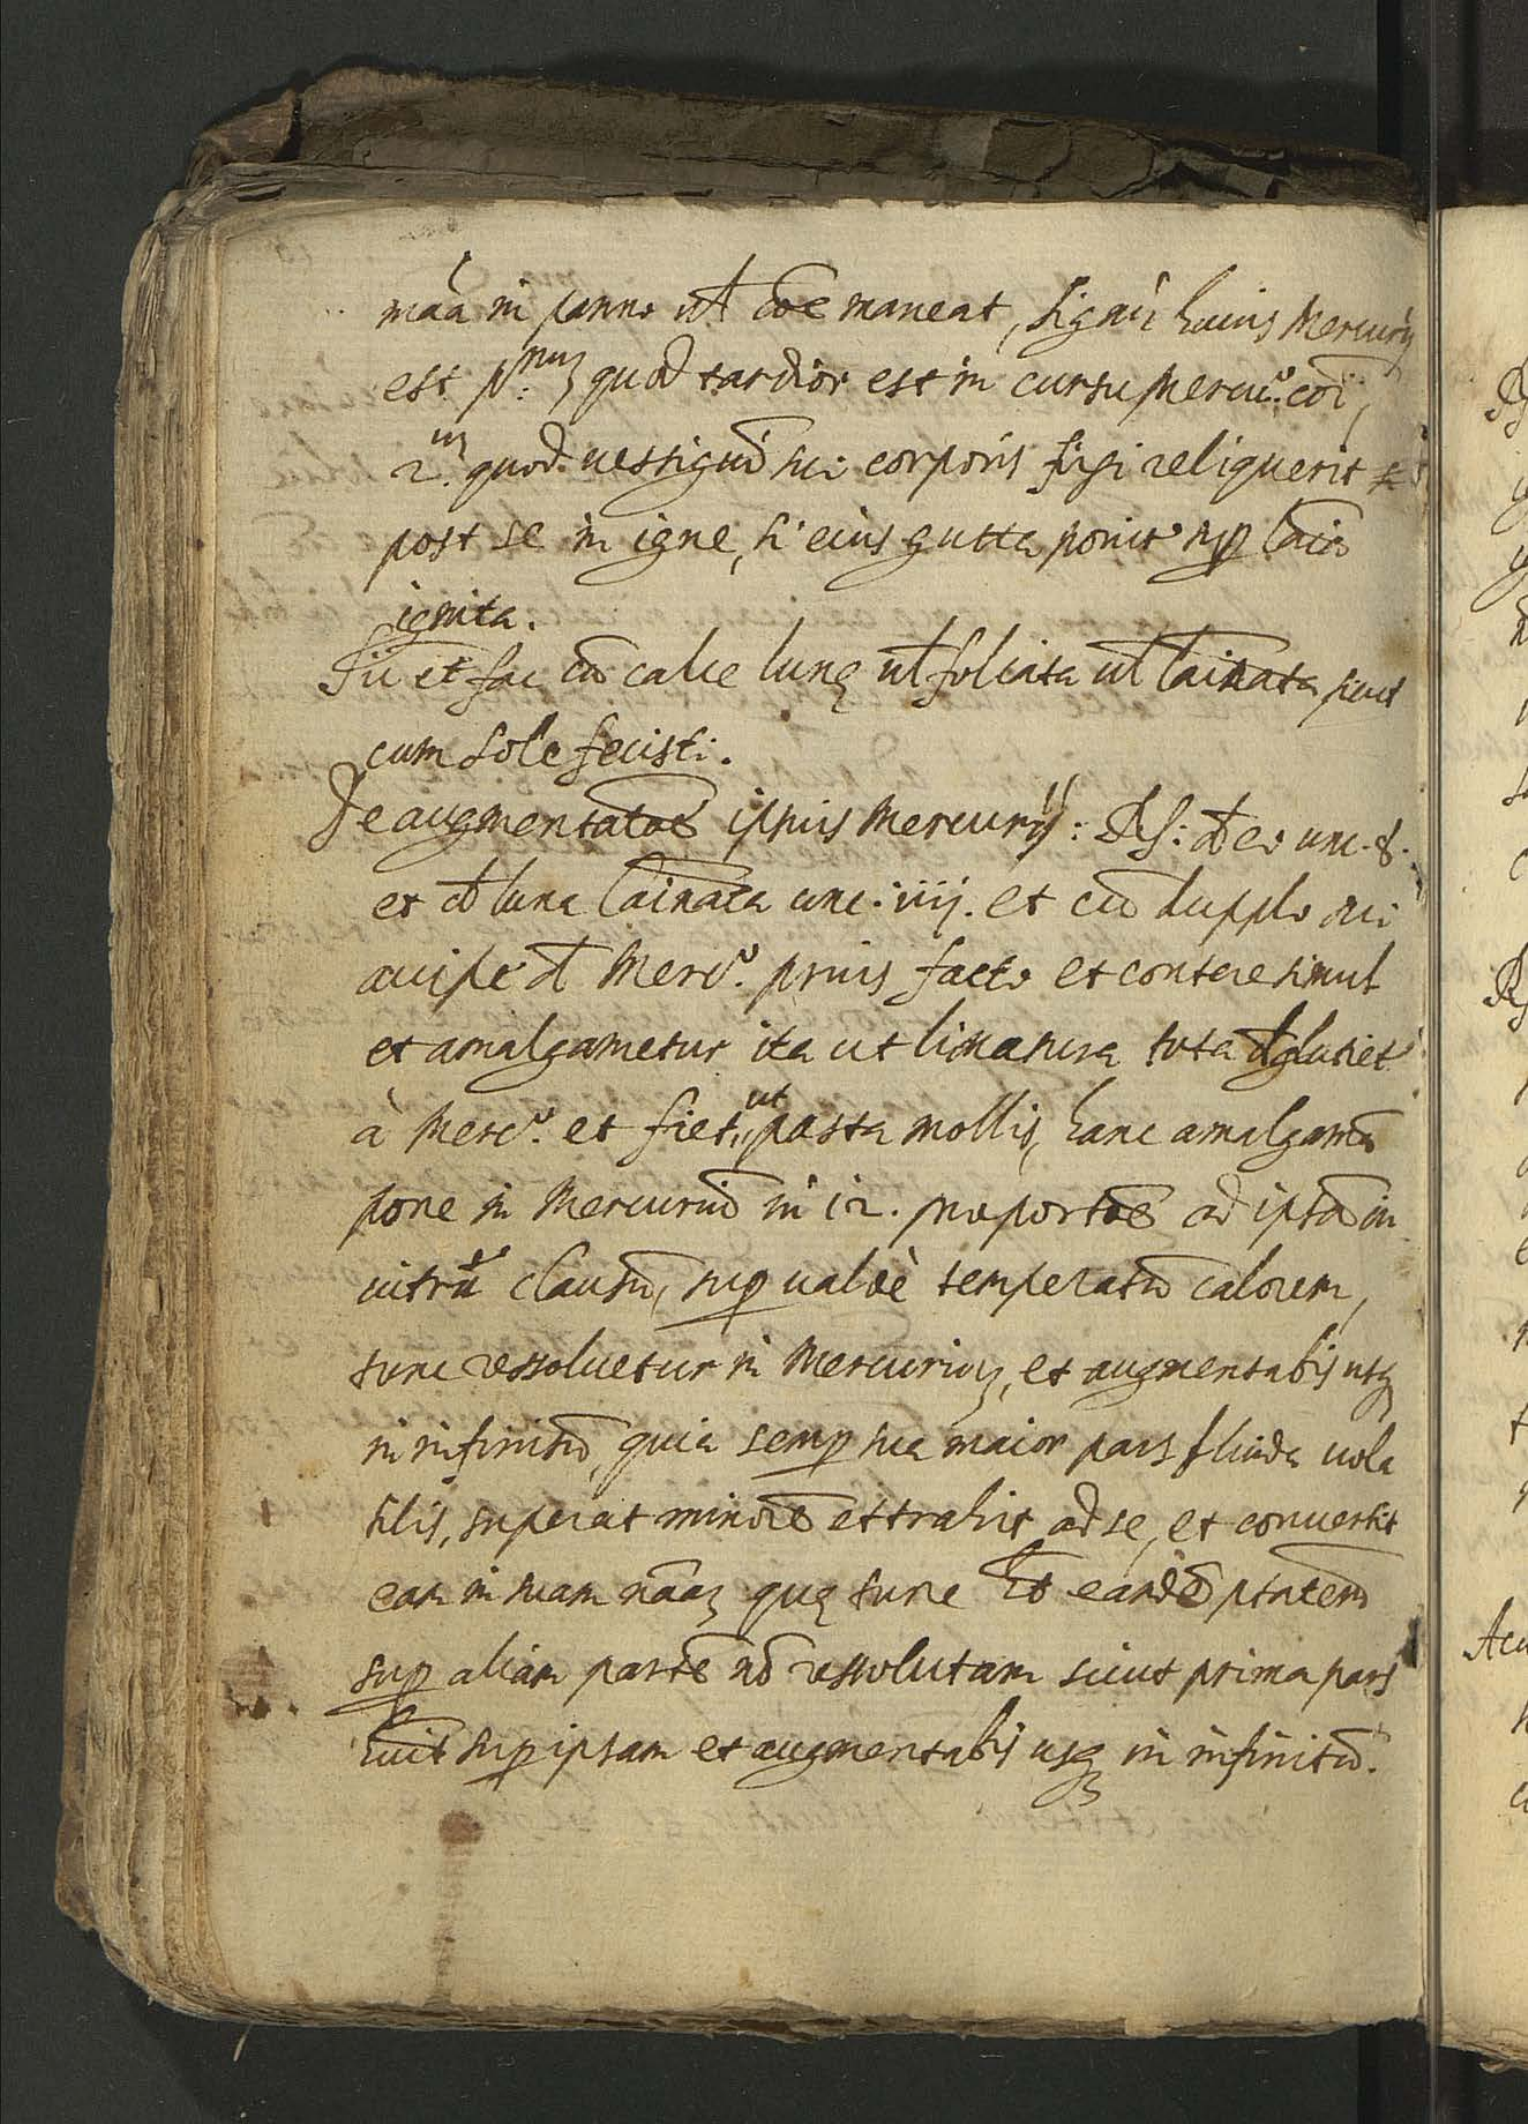 mãa in panno ut cõe maneat, signũ huius Mercurij
est p:mus quod tardior est in cursu Mercu.º coĩ,
2.m quod uestigiũ sui corporis fixi reliquerit
post se in igne, si eius gutta ponit' sup laĩa
ignita.
Sic et fac cũ calce lunę ul foliata ul laĩnata sicut
cum sole fecisti.
De augmentatõe ipsius Mercurij: Rs: de eo unc. 8.
et de luna laĩnata unc. iiij. et cũ dupplo sui
accipe de Merc.º prius facto et contere simul
et amalgametur ita ut limatura tota deglutiet'
à Merc.º et fiet ut pasta mollis, hanc amalgamã
pone in Mercuriũ in 12. proportõe ad ipsã in
uitrũ clausũ, sup ualdè temperatũ calorem,
tunc ressoluetur in Mercurium, et augmentabis usq
in infinitũ, quia semp sua maior pars fluida uola
tilis, superat minorẽ et trahit ad se, et conuertit
eam in suam nãam quę tunc hẽt eandẽ ptãtem
sup aliam partẽ nõ ressolutam sicut prima pars
huit sup ipsam et augmentabis usq in infinitũ.